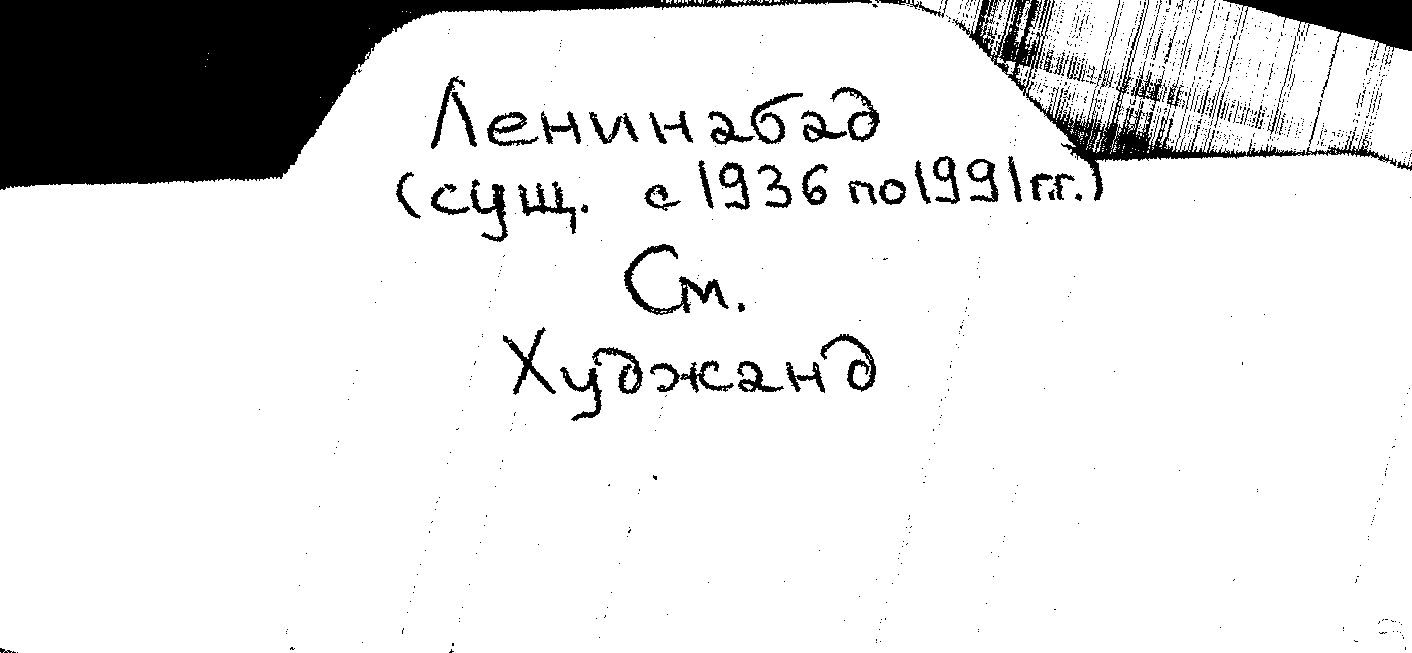 Ленинабад
(сущ. с 1936 по 1991 гг.)
См.
Худжанд